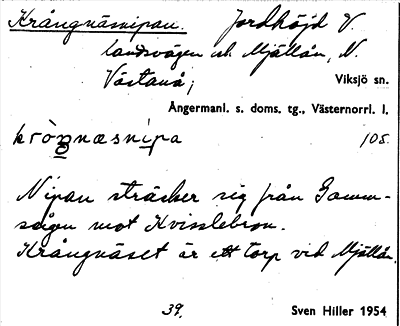 Krångnäsnipan. Jordhöjd V.
landsvägen och Mjällån, N.
Västanå; Viksjö sn.
Ångermanl. s. doms. tg., Västernorrl. l.
108.
Nipan sträcker sig från Gamm-
sågen mot Kvisslebron.
Krångnäset är ett torp vid Mjällån.
39. Sven Hiller 1954